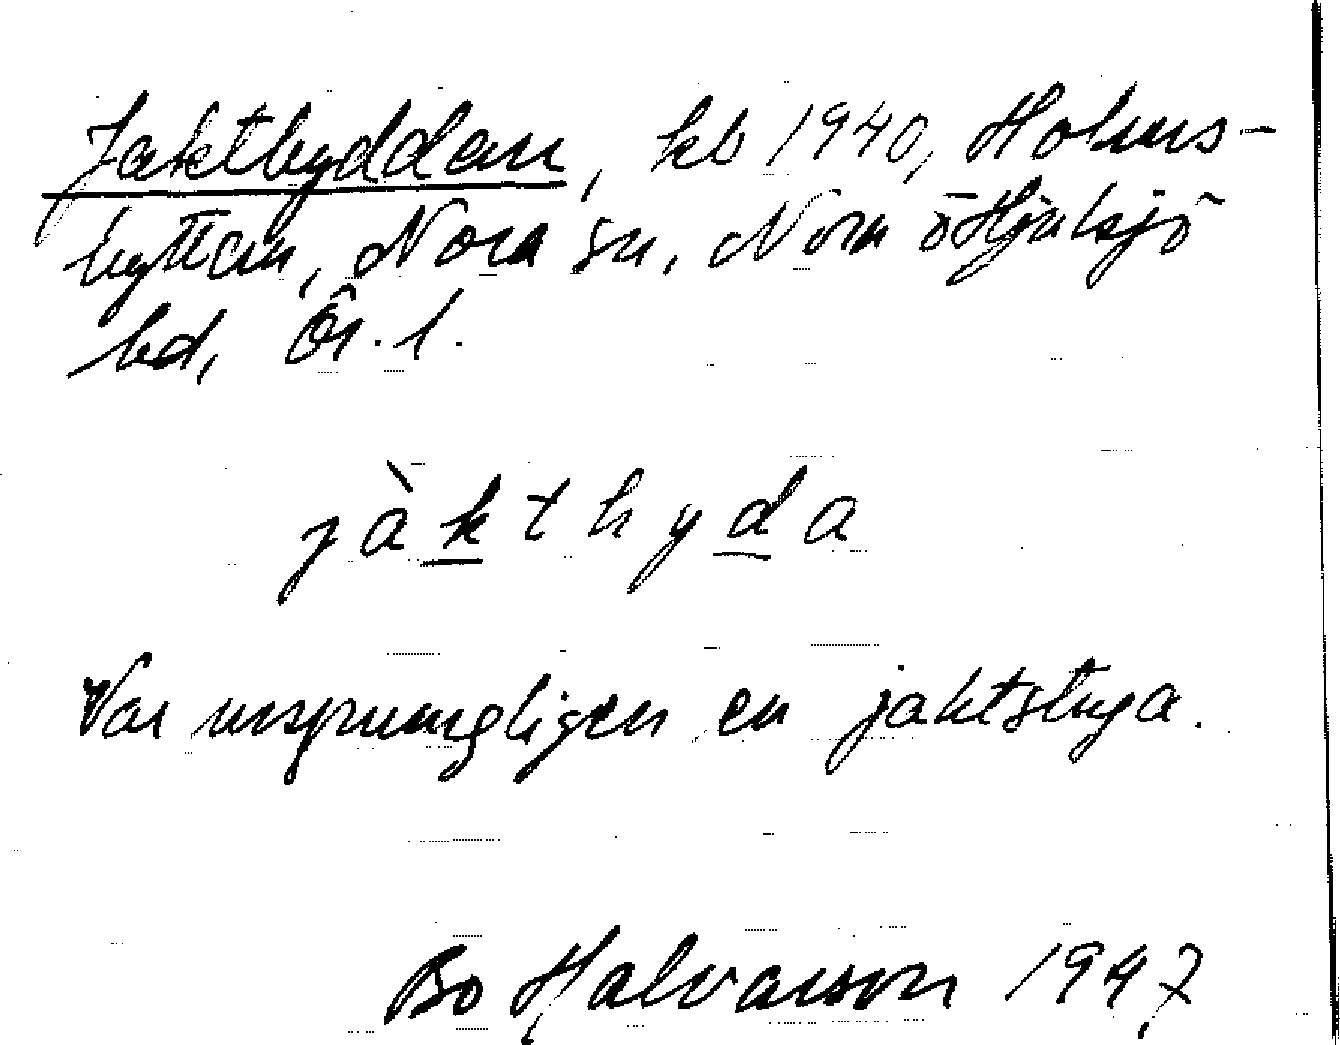 Jakthyddan, kb 1940, Holms-
hyttan, Nora sn, Nora o Hjulsjö
bd, Ör. l.
jàkthyda
Var ursprungligen en jaktstuga.
Bo Halvarson 1947